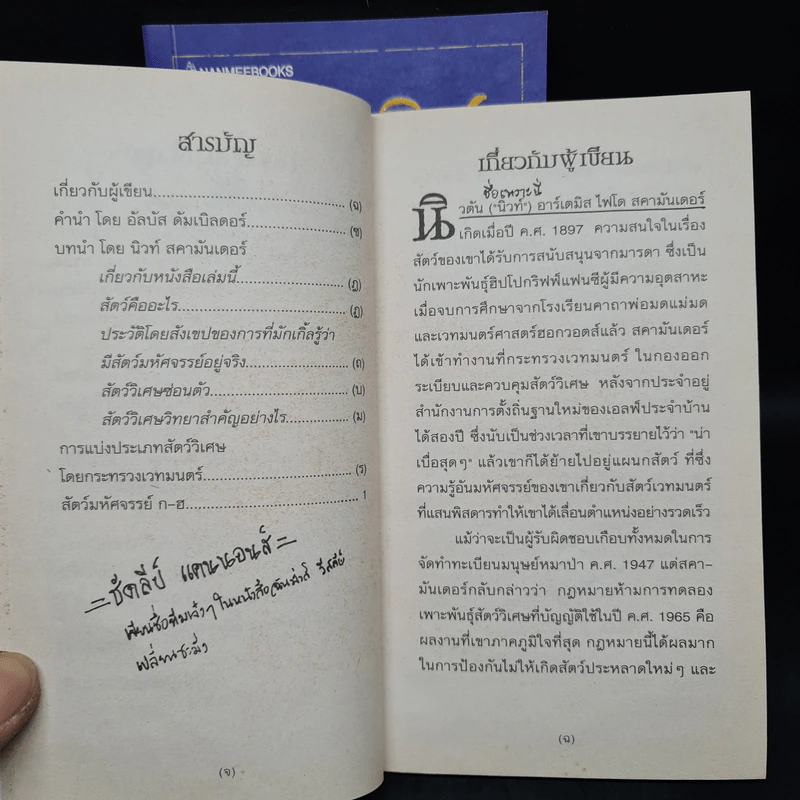 NANMEEBOOKS
สารบัญ
เกี่ยวกับผู้เขียน....................................(ฉ)
คำนำ โดย อัลบัส ดัมเบิลดอร์....................(ช)
บทนำ โดย นิวท์ สคามันเดอร์
เกี่ยวกับหนังสือเล่มนี้.....................(ฎ)
สัตว์คืออะไร.................................(ฏ)
ประวัติโดยสังเขปของการที่มักเกิ้ลรู้ว่า
มีสัตว์มหัศจรรย์อยู่จริง....................(ถ)
สัตว์วิเศษซ่อนตัว..........................(บ)
สัตว์วิเศษวิทยาสำคัญอย่างไร............(ม)
การแบ่งประเภทสัตว์วิเศษ
โดยกระทรวงเวทมนตร์............................(ร)
สัตว์มหัศจรรย์ ก-ฮ.................................1
=ชัดลีย์ แคนนอนส์=
เขียนชื่อทีมเจ๋งๆ ในหนังสือ
(จ)
เกี่ยวกับผู้เขียน
ชื่อเพราะนี่
นิวตัน ("นิวท์") อาร์เตมิส ไฟโด สคามันเดอร์
เกิดเมื่อปี ค.ศ. 1897 ความสนใจในเรื่อง
สัตว์ของเขาได้รับการสนับสนุนจากมารดา ซึ่งเป็น
นักเพาะพันธุ์ฮิปโปกริฟฟ์แฟนซีผู้มีความอุตสาหะ
เมื่อจบการศึกษาจากโรงเรียนคาถาพ่อมดแม่มด
และเวทมนตร์ศาสตร์ฮอกวอตส์แล้ว สคามันเดอร์
ได้เข้าทำงานที่กระทรวงเวทมนตร์ ในกองออก
ระเบียบและควบคุมสัตว์วิเศษ หลังจากประจำอยู่
สำนักงานการตั้งถิ่นฐานใหม่ของเอลฟ์ประจำบ้าน
ได้สองปี ซึ่งนับเป็นช่วงเวลาที่เขาบรรยายไว้ว่า "น่า
เบื่อสุดๆ" แล้วเขาก็ได้ย้ายไปอยู่แผนกสัตว์ ที่ซึ่ง
ความรู้อันมหัศจรรย์ของเขาเกี่ยวกับสัตว์เวทมนตร์
ที่แสนพิสดารทำให้เขาได้เลื่อนตำแหน่งอย่างรวดเร็ว
แม้ว่าจะเป็นผู้รับผิดชอบเกือบทั้งหมดในการ
จัดทำทะเบียนมนุษย์หมาป่า ค.ศ. 1947 แต่สคา-
มันเดอร์กลับกล่าวว่า กฎหมายห้ามการทดลอง
เพาะพันธุ์สัตว์วิเศษที่บัญญัติใช้ในปี ค.ศ. 1965 คือ
ผลงานที่เขาภาคภูมิใจที่สุด กฎหมายนี้ได้ผลมาก
ในการป้องกันไม่ให้เกิดสัตว์ประหลาดใหม่ๆ และ
(ฉ)